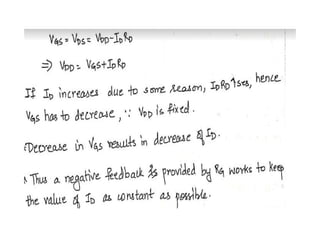 VGS = VDS = VDD - IDRD
⇒ VDD = VGS + IDRD
If ID increases due to some reason, IDRD ↑ses, hence
VGS has to decrease, ∵ VDD is fixed.
Decrease in VGS results in decrease of ID.
Thus a negative feedback is provided by RG works to keep
the value of ID as constant as possible.